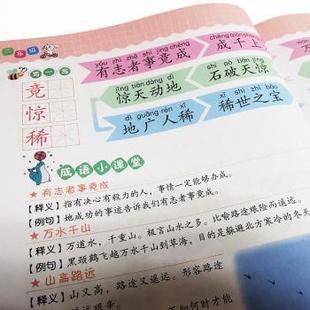 一年级
写一写
竟
惊
稀
yǒu zhì zhě shì jìng chéng
有志者事竟成
chéng qiān shàng
成千上
jīng tiān dòng dì
惊天动地
shí pò tiān jīng
石破天惊
dì guǎng rén xī
地广人稀
xī shì zhī bǎo
稀世之宝
成语小课堂
★有志者事竟成
【释义】指有决心有毅力的人，事情一定能够办成。
【例句】她成功的事迹告诉我们有志者事竟成。
★万水千山
【释义】万道水，千重山。极言山水之多。比喻路途艰险而遥远。
【例句】黑颈鹤飞越万水千山到草海，目的是躲避北方寒冷的冬天
★山高路远
【释义】山又高，路途又遥远。形容路途